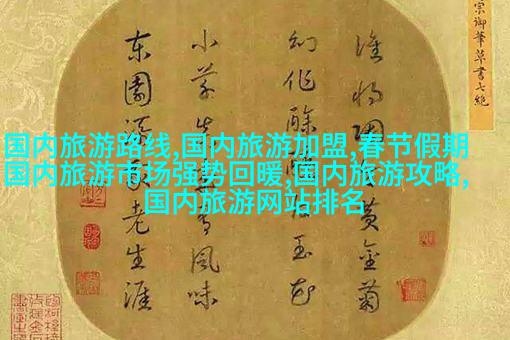 国内旅游路线,国内旅游加盟,春节假期
国内旅游市场强势回暖,国内旅游攻略,
国内旅游网站排名
宗御筆草書七絶
誰將黃金菊
幻作酴玉花
小草風味
東園添老生涯